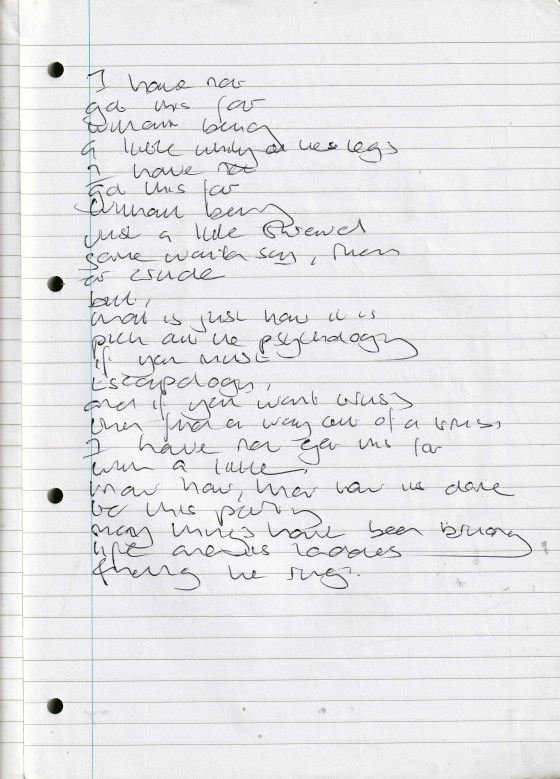 I have not
got this far
without being
a little windy on the legs
I have not
got this far
without being
just a little shrewd
some would say, then
or crude
but,
that is just how it is
pick out the psychology
if you must
Escapology,
and if you want
then find a way out of a
I have not got this far
with a little,
know how, that has us done
to this party
many things have been
life ladders
the rungs.